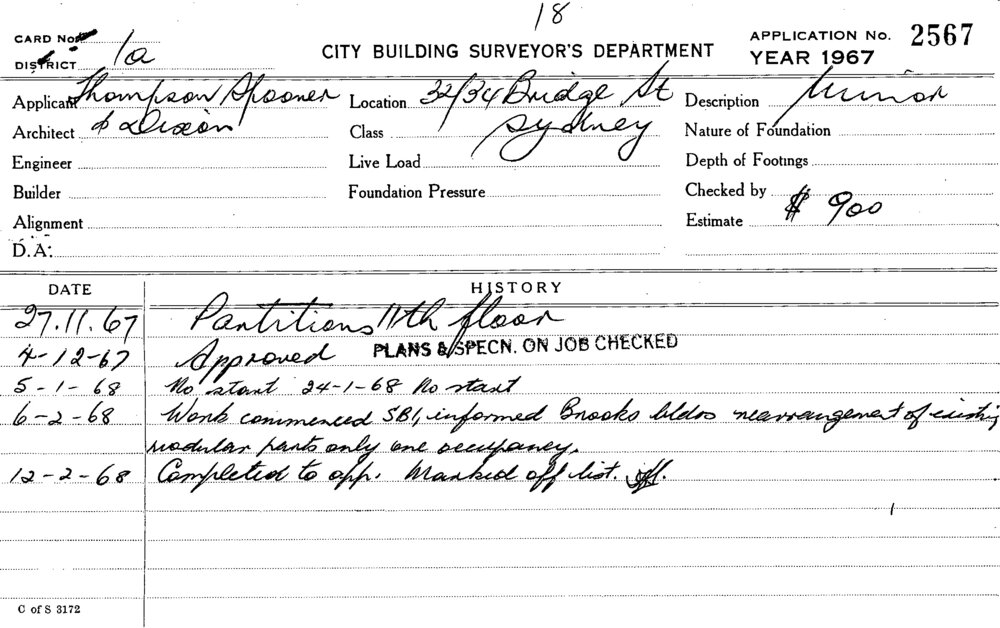 18
CARD No.
DISTRICT 1a
CITY BUILDING SURVEYOR'S DEPARTMENT
APPLICATION No. 2567
YEAR 1967
Applicant Thompson Spooner
Architect & Dixon
Engineer
Builder
Alignment
D.A:
Location 32/34 Bridge St
Class Sydney
Live Load
Foundation Pressure
Description Minor
Nature of Foundation
Depth of Footings
Checked by
Estimate $ 900
DATE HISTORY
27.11.67 Partitions 11th floor
4-12-67 Approved PLANS & SPECN. ON JOB CHECKED
5-1-68 No start 24-1-68 No start
6-2-68 Work commenced SBI, informed Brooks bldrs rearrangement of existing
modular parts only one occupancy.
12-2-68 Completed to app. Marked off list.
C of S 3172